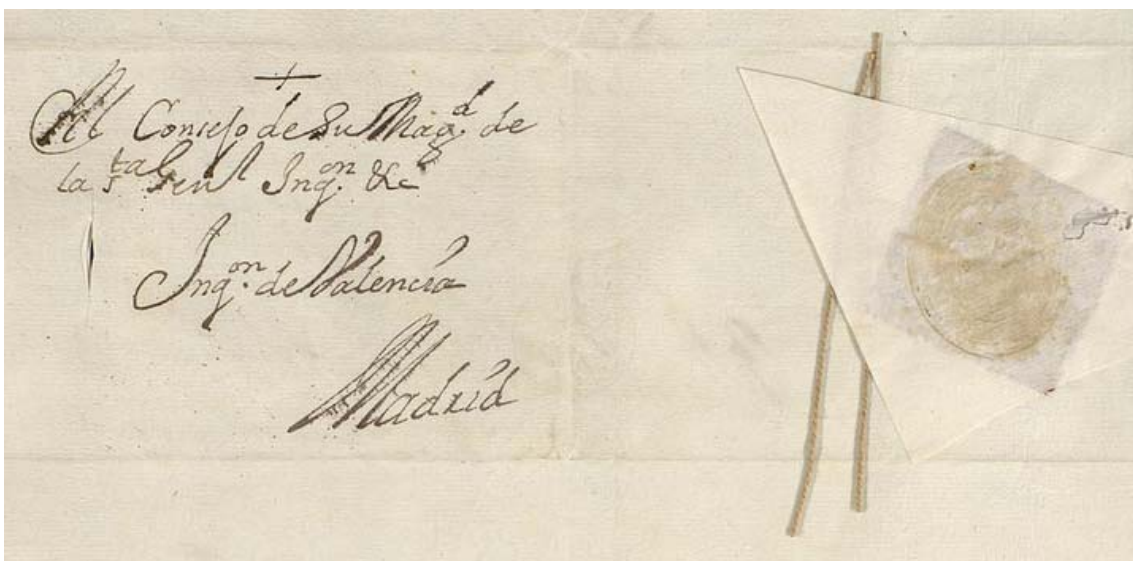 Al Consejo de Su Mag.d de
la s.ta Gen.l Inq.on &c
Inq.on de Valencia
Madrid